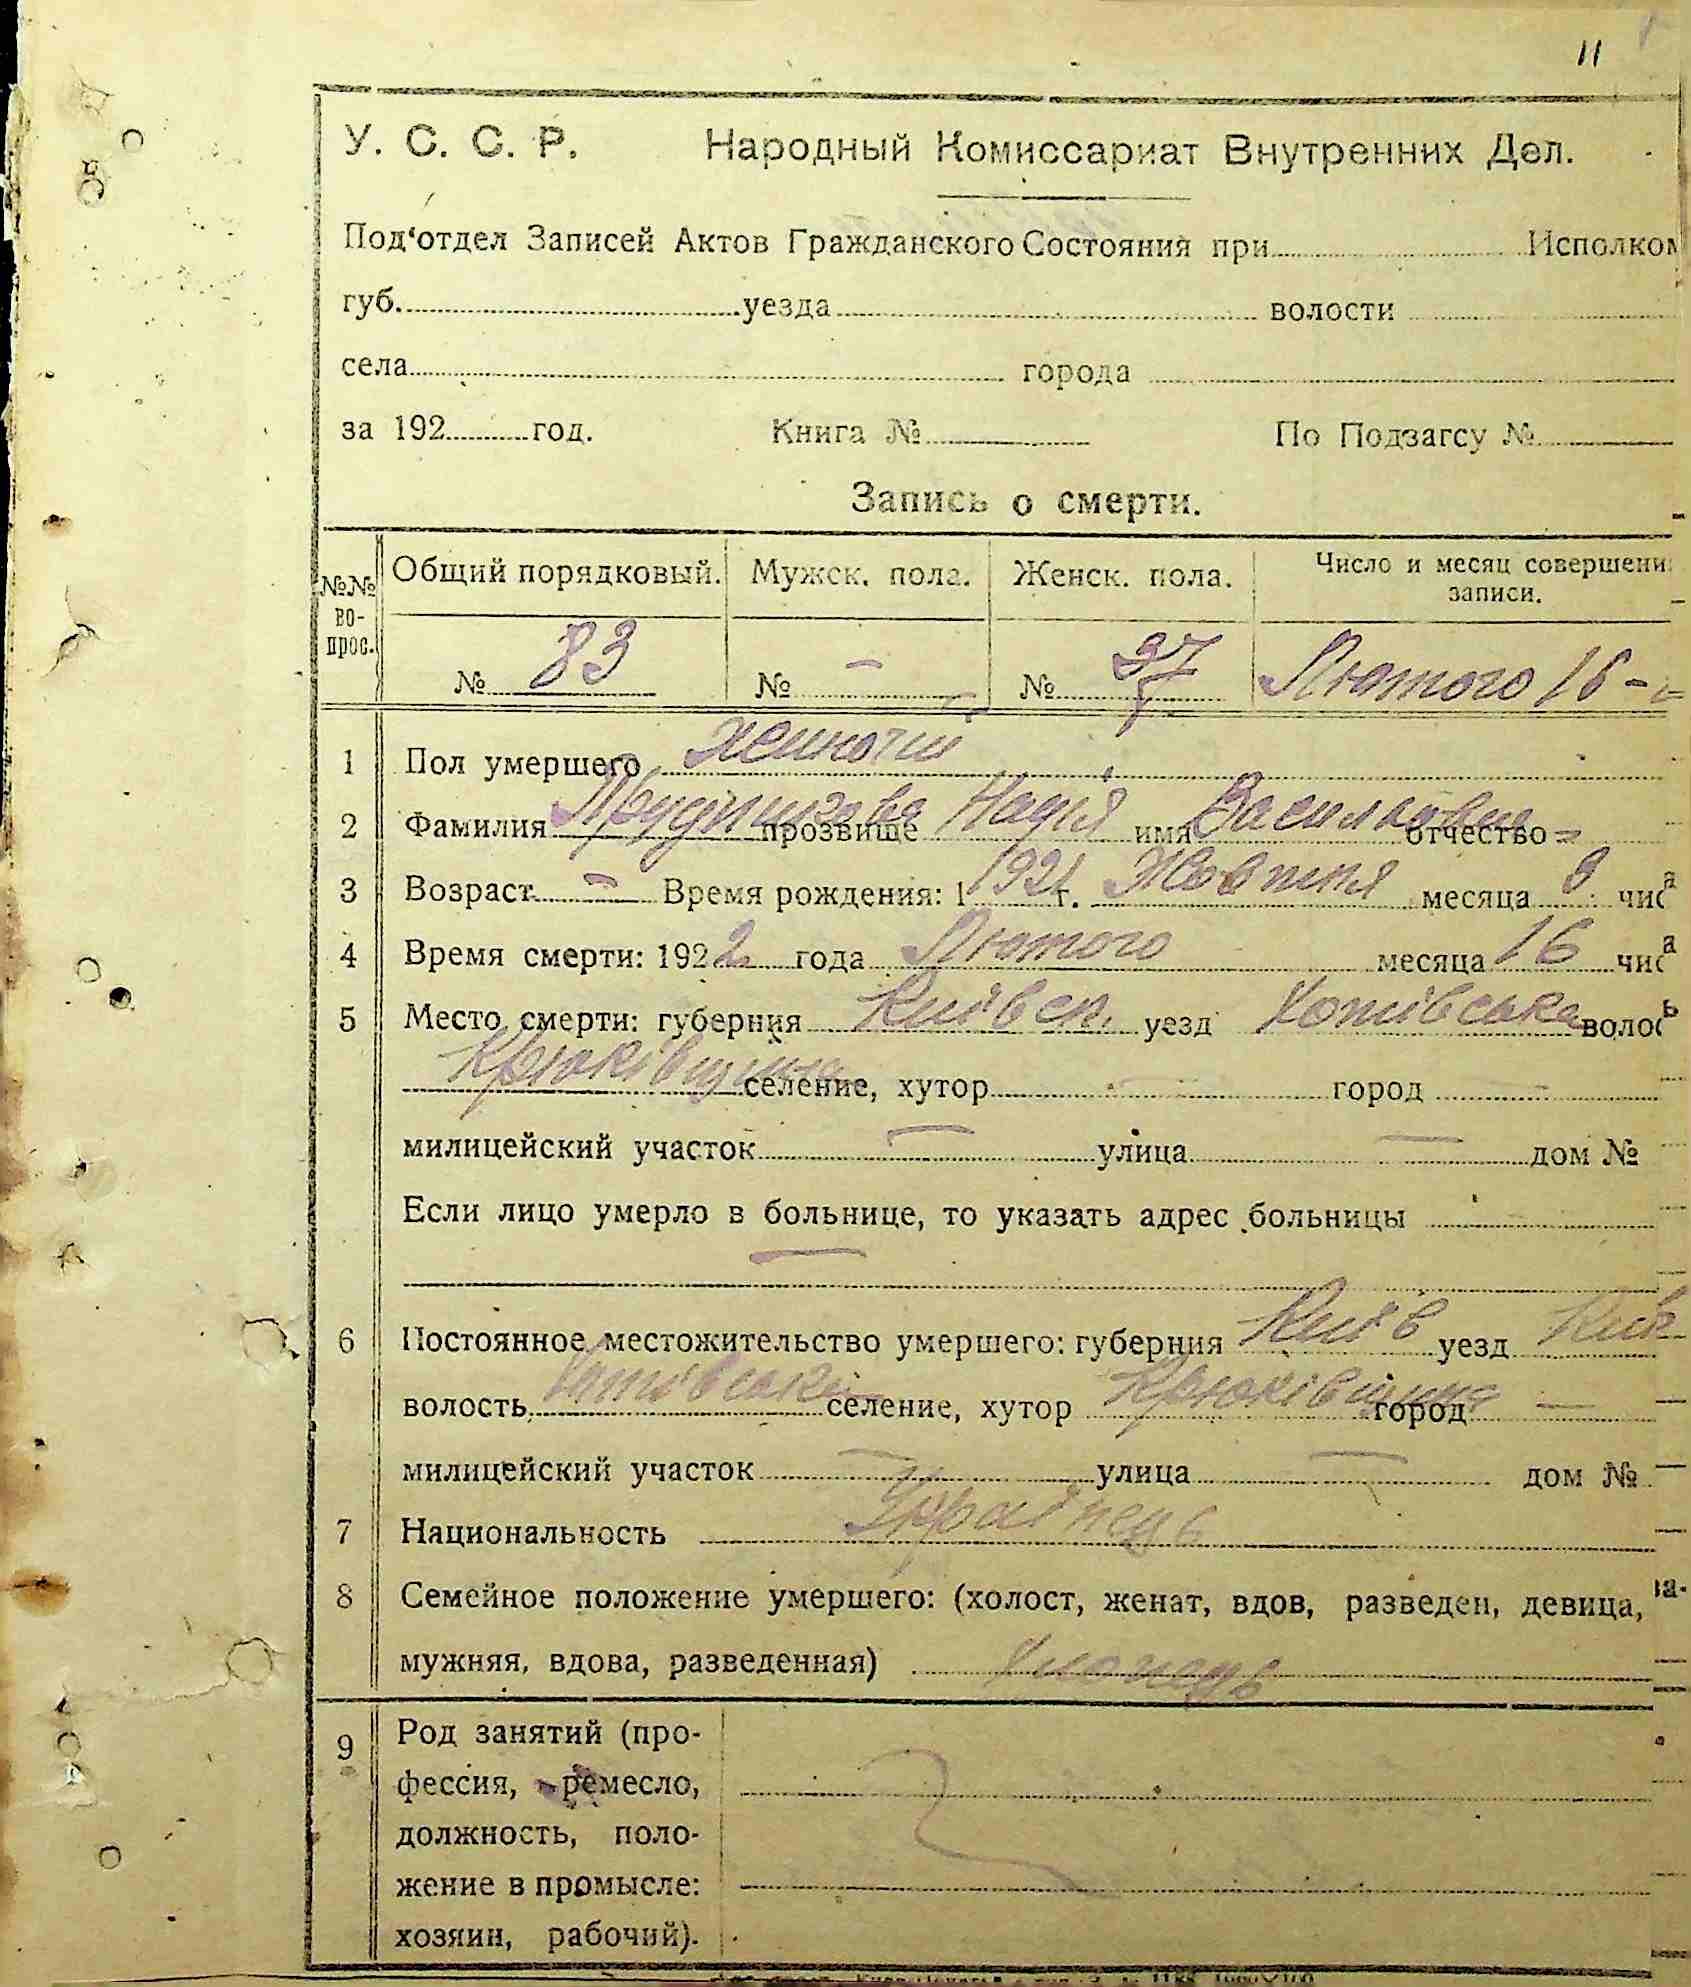 11
У. С. С. Р. Народный Комиссариат Внутренних Дел.
Под'отдел Записей Актов Гражданского Состояния при Исполком
губ. уезда волости
села города
за 192 год. Книга № По Подзагсу №
Запись о смерти.
№№ во-прос. Общий порядковый. Мужск. пола. Женск. пола. Число и месяц совершени записи.
№ 83 № — № 37 Лютого 16
1 Пол умершего жиночий
2 Фамилия прозвище Надія имя Васильовна отчество
3 Возраст — Время рождения: 1 1921 г. Жовтня месяца 8 чис
4 Время смерти: 1922 года Лютого месяца 16 чис
5 Место смерти: губерния Київск. уезд Хотівська волос
Крюківщина селение, хутор — город —
милицейский участок — улица — дом №
Если лицо умерло в больнице, то указать адрес больницы
—
6 Постоянное местожительство умершего: губерния Київ уезд Київ
волость Хотівська селение, хутор Крюківщина город —
милицейский участок — улица — дом № —
7 Национальность Украінець
8 Семейное положение умершего: (холост, женат, вдов, разведен, девица, за-
мужняя, вдова, разведенная)
9 Род занятий (про-
фессия, ремесло,
должность, поло-
жение в промысле:
хозяин, рабочий).